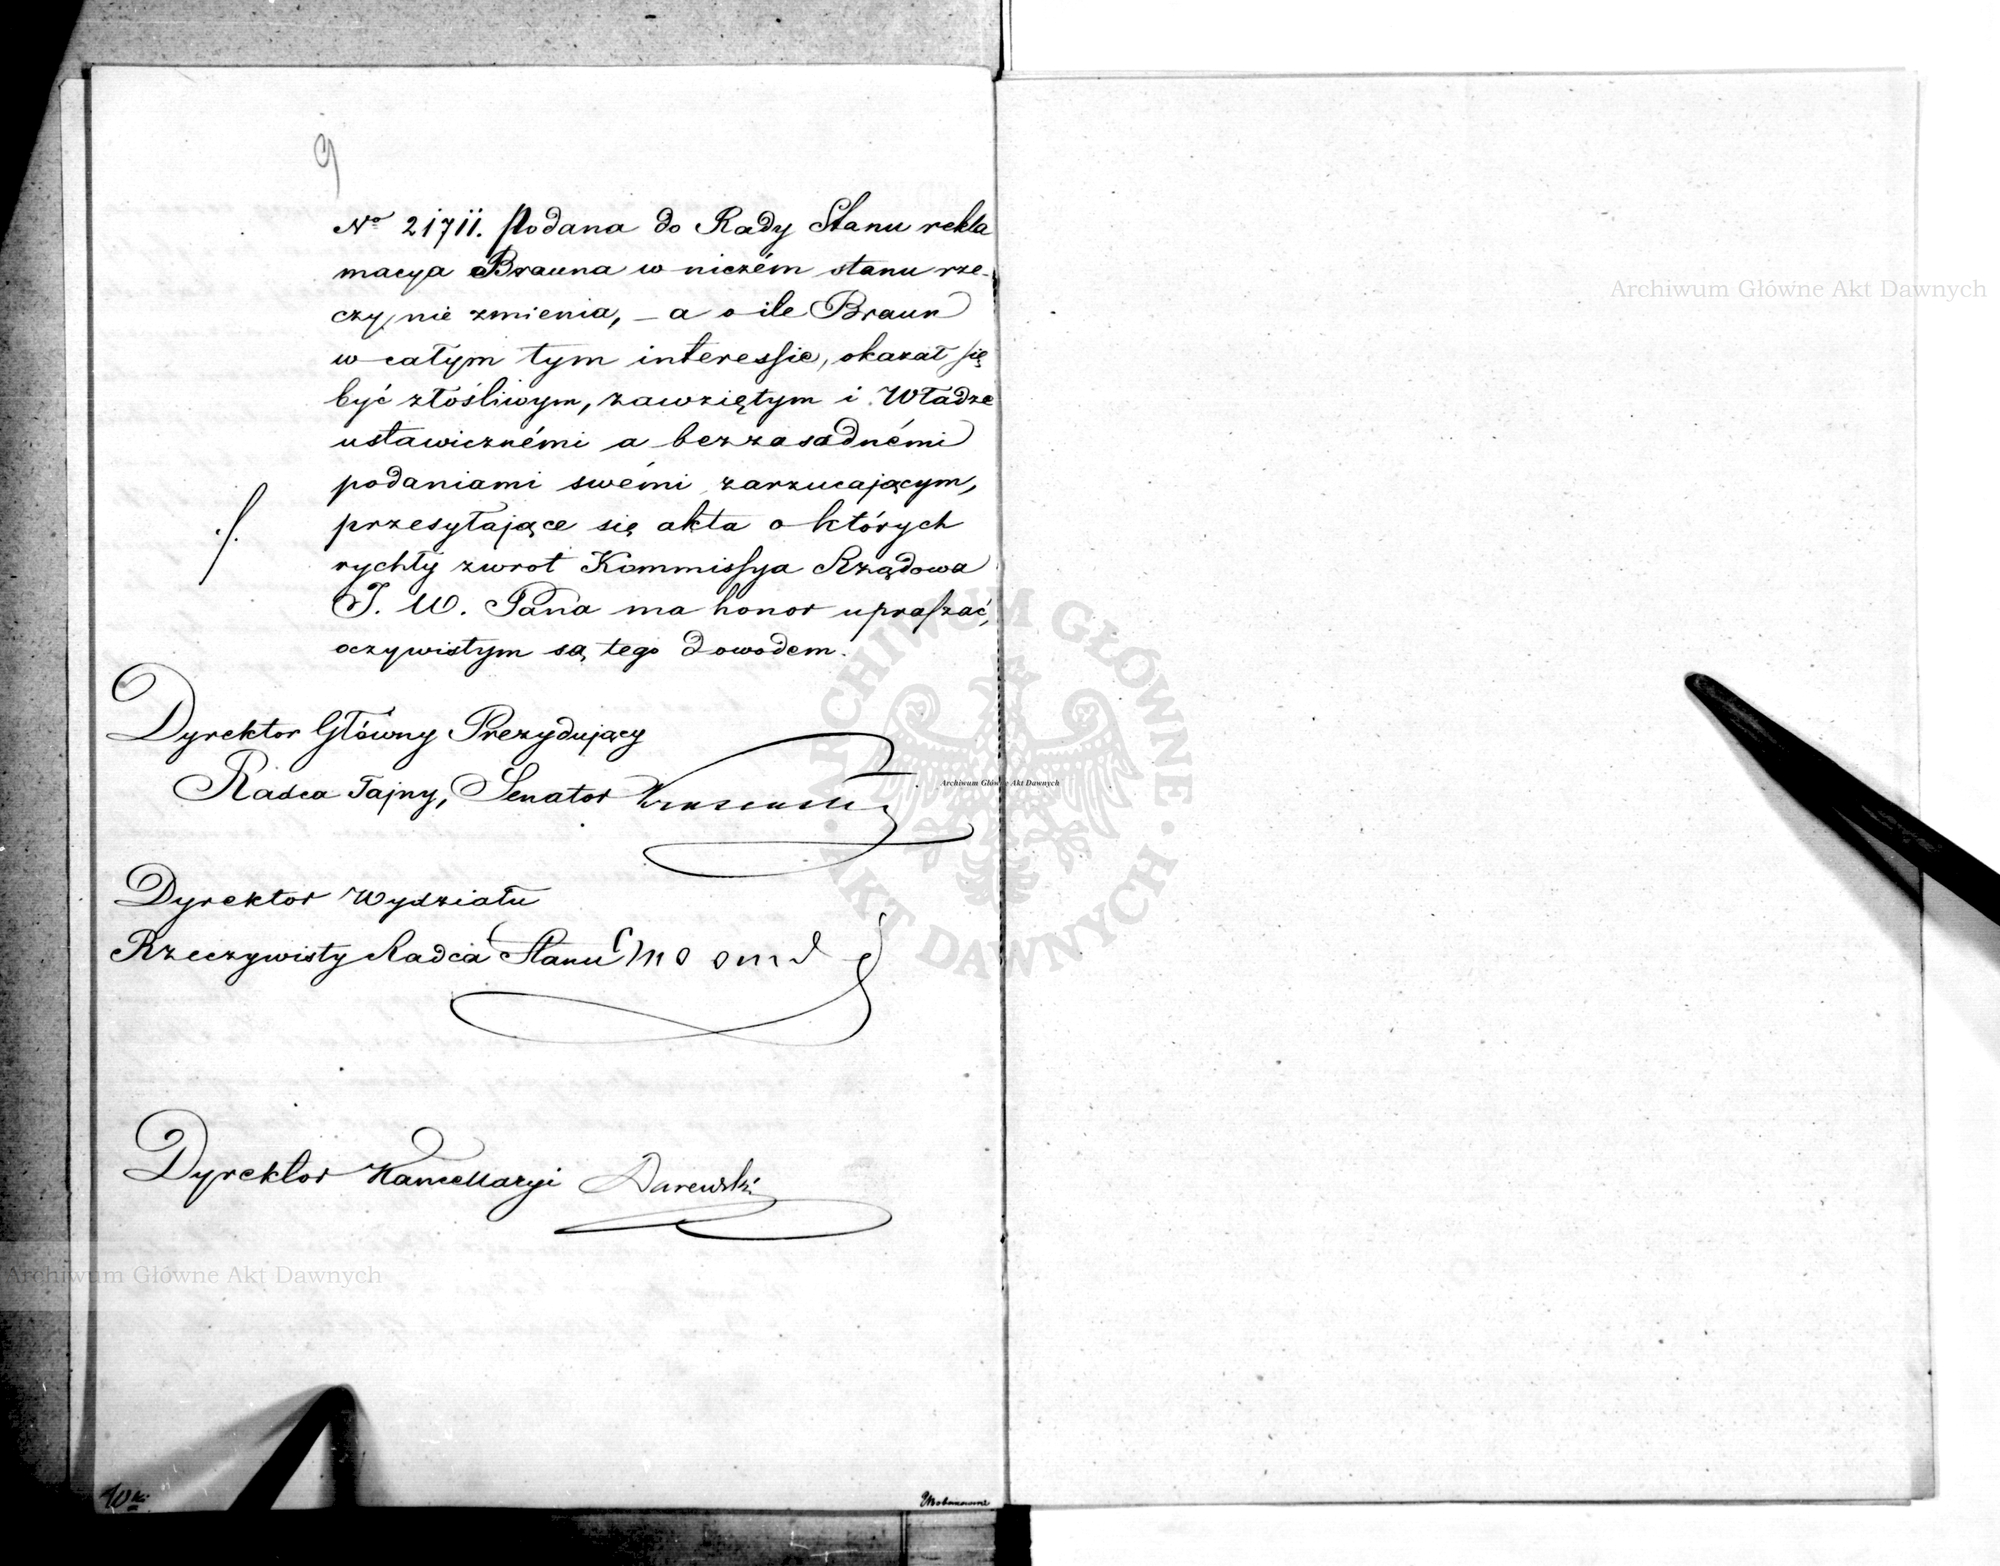 9
No 21711. Podana do Rady Stanu rekla
macya Brauna w niczém stanu rze-
czy nie zmienia, – a o ile Braun
w całym tym interessie, okazał się
być złośliwym, zawziętym i Władze
ustawicznémi a bezzasadnémi
podaniami swémi zarzucającym,
przesyłające się akta o których
./.
rychły zwrot Kommissya Rządowa
J. W. Pana ma honor upraszać,
oczywistym są tego dowodem.
Dyrektor Główny Prezydujący
Radca Tajny, Senator
Dyrektor Wydziału
Rzeczywisty Radca Stanu
Dyrektor Kancellaryi Darewski
Archiwum Główne Akt Dawnych
Archiwum Główne Akt Dawnych
Archiwum Główne Akt Dawnych
ARCHIWUM GŁÓWNE AKT DAWNYCH